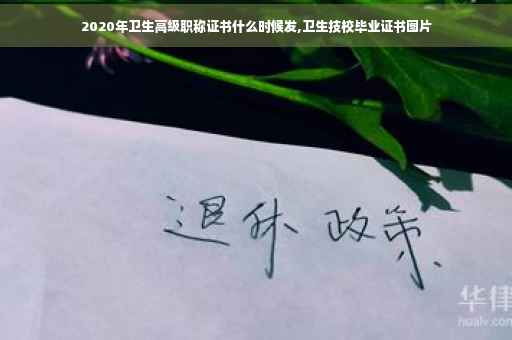 2020年卫生高级职称证书什么时候发,卫生技校毕业证书图片
退休 政策
华律
hualv.com